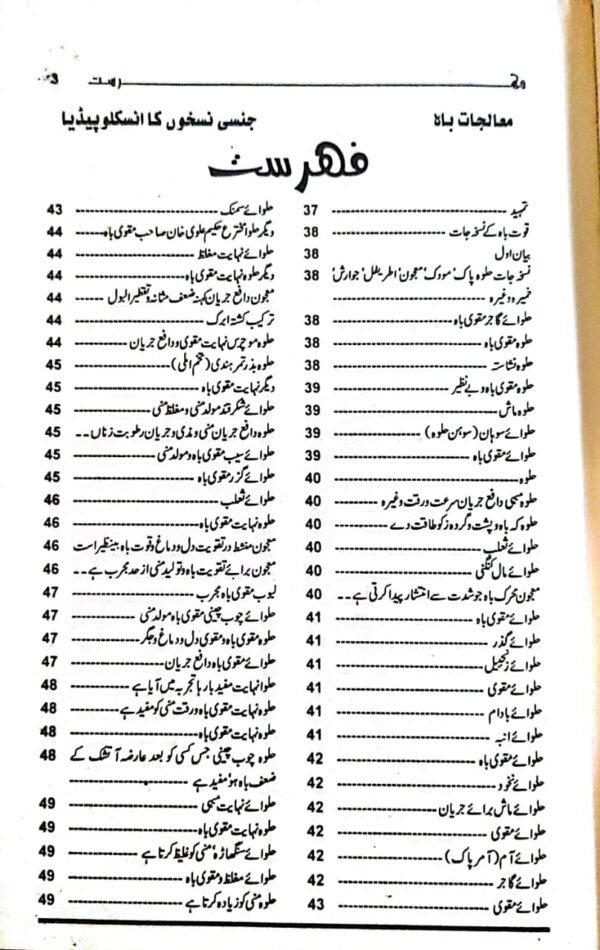 فہرست 3
معالجات باہ
جنسی نسخوں کا انسکلوپیڈیا
فہرست
تمہید ------ 37
قوت باہ کے نسخہ جات ------ 38
بیان اول 38
نسخہ جات حلوہ پاک' مودک' معجون' اطریفل' جوارش' 38
خمیرہ وغیرہ ------
حلوائے گاجر مقوی باہ ------ 38
حلوہ مقوی باہ ------ 38
حلوہ نشاستہ ------ 38
حلوہ مقوی باہ و بے نظیر ------ 39
حلوہ ماش ------ 39
حلوائے سوہان (سوہن حلوہ) ------ 39
حلوائے مقوی باہ ------ 39
حلوہ ------ 40
حلوہ سمی دافع جریان سرعت ورقت وغیرہ ------ 40
حلوہ کہ باہ و پشت و گردہ زکو طاقت دے ------ 40
حلوائے ثعلب ------ 40
حلوائے مال کنگنی ------ 40
معجون محرک باہ جو شدت سے انتشار پیدا کرتی ہے -- 40
حلوائے مقوی باہ ------ 41
حلوائے گذر ------ 41
حلوائے زنجبیل ------ 41
حلوائے مقوی ------ 41
حلوائے بادام ------ 41
حلوائے انبہ ------ 41
حلوائے مقوی باہ ------ 42
حلوائے نخود ------ 42
حلوائے ماش برائے جریان ------ 42
حلوائے مقوی ------ 42
حلوائے آم (آمر پاک) ------ 42
حلوائے گاجر ------ 42
حلوائے مقوی ------ 43
حلوائے سمنک ------ 43
دیگر حلوا مخترع حکیم علوی خان صاحب مقوی باہ ------ 44
حلوائے نہایت مغلظ ------ 44
دیگر حلوہ نہایت مقوی باہ ------ 44
معجون دافع جریان کہنہ ضعف مثانہ و تقطیر البول ------ 44
ترکیب کشتہ ابرک ------ 44
حلوہ موچرس نہایت مقوی و دافع جریان ------ 44
حلوہ بذر تمر ہندی (تخم املی) ------ 45
دیگر نہایت مقوی باہ ------ 45
حلوائے شکر قند مولد منی و مغلظ منی ------ 45
حلوہ دافع جریان منی و مذی و جریان رطوبت زناں -- 45
حلوائے سیب مقوی باہ و مولد منی ------ 45
حلوائے گزر مقوی باہ ------ 45
حلوائے ثعلب ------ 46
حلوہ نہایت مقوی باہ ------ 46
معجون منشط در تقویت دل و دماغ و قوت باہ بینظیر است 46
معجون برائے تقویت باہ و تولید منی از حد مجرب ہے -- 46
لبوب مقوی باہ مجرب ------ 47
حلوائے چوب چینی مقوی باہ مولد منی ------ 47
حلوہ مقوی باہ و مقوی دل و دماغ و جگر ------ 47
حلوائے مقوی باہ دافع جریان ------ 47
حلوا نہایت مفید بارہا تجربہ میں آیا ہے ------ 48
حلوہ نہایت مقوی باہ ورقت منی کو مفید ہے ------ 48
حلوہ نہایت مقوی باہ ------ 48
حلوہ چوب چینی جس کسی کو بعد عارضہ آتشک کے 48
ضعف باہ ہو' مفید ہے ------
حلوائے نہایت سمی ------ 49
حلوہ نہایت مقوی باہ ------ 49
حلوائے سنگھاڑہ' منی کو غلیظ کرتا ہے ------ 49
حلوائے مغلظ و مقوی باہ ------ 49
حلوہ منی کو زیادہ کرتا ہے ------ 49